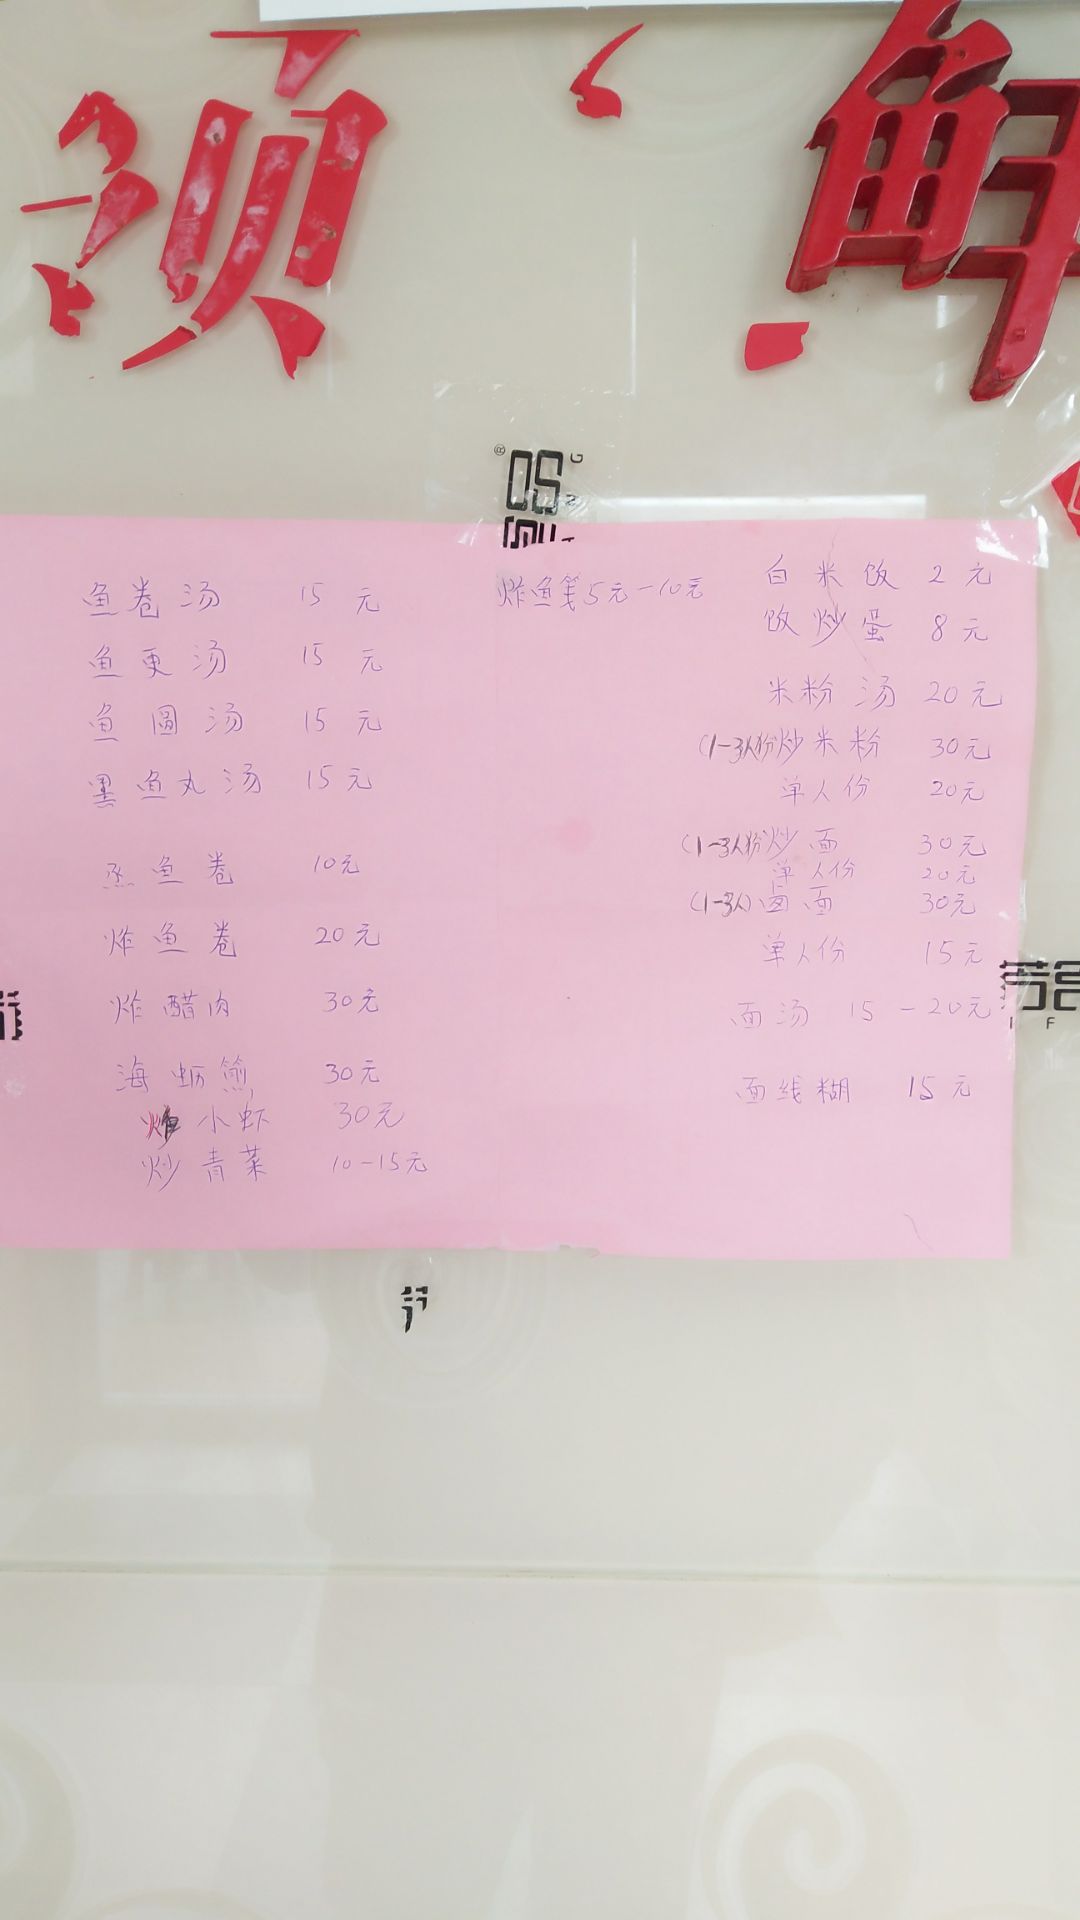 鲜
鱼卷汤 15元
鱼更汤 15元
鱼圆汤 15元
墨鱼丸汤 15元
蒸鱼卷 10元
炸鱼卷 20元
炸醋肉 30元
海蛎煎 30元
炸小虾 30元
炒青菜 10-15元
炸鱼 5元-10元
白米饭 2元
饭炒蛋 8元
米粉汤 20元
(1-3人份炒米粉 30元
单人份 20元
(1-3人份炒面 30元
单人份 20元
(1-3人)卤面 30元
单人份 15元
面汤 15-20元
面线糊 15元